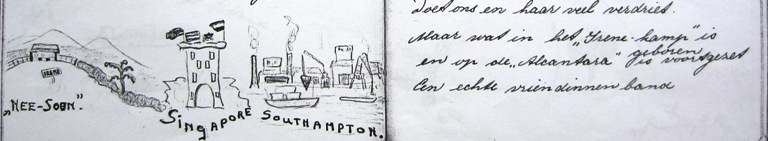 IRENE
„NEE-SOON".
SINGAPORE SOUTHAMPTON.
doet ons en haar veel verdriet.
Maar wat in het „Irene-kamp" is
geboren
en op de „Alcantara" is voortgezet
Een echte vriendinnen band